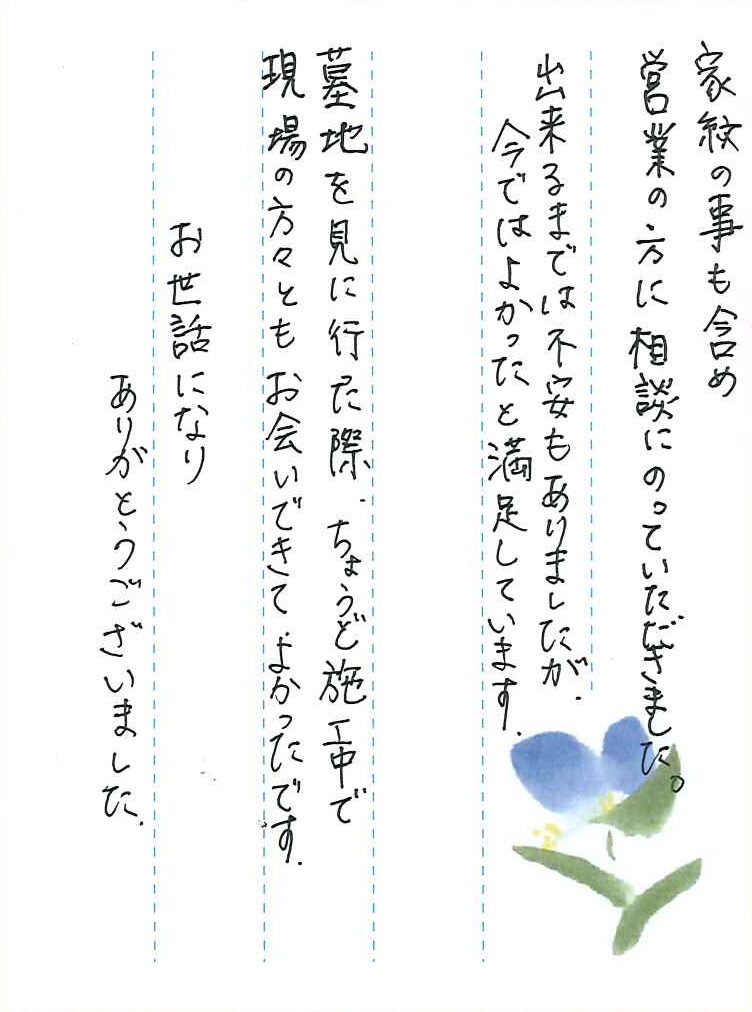 家紋の事も含め
営業の方に相談にのっていただきました。
出来るまでは不安もありましたが、
今ではよかったと満足しています。
墓地を見に行った際、ちょうど施工中で
現場の方々ともお会いできてよかったです。
お世話になり
ありがとうございました。